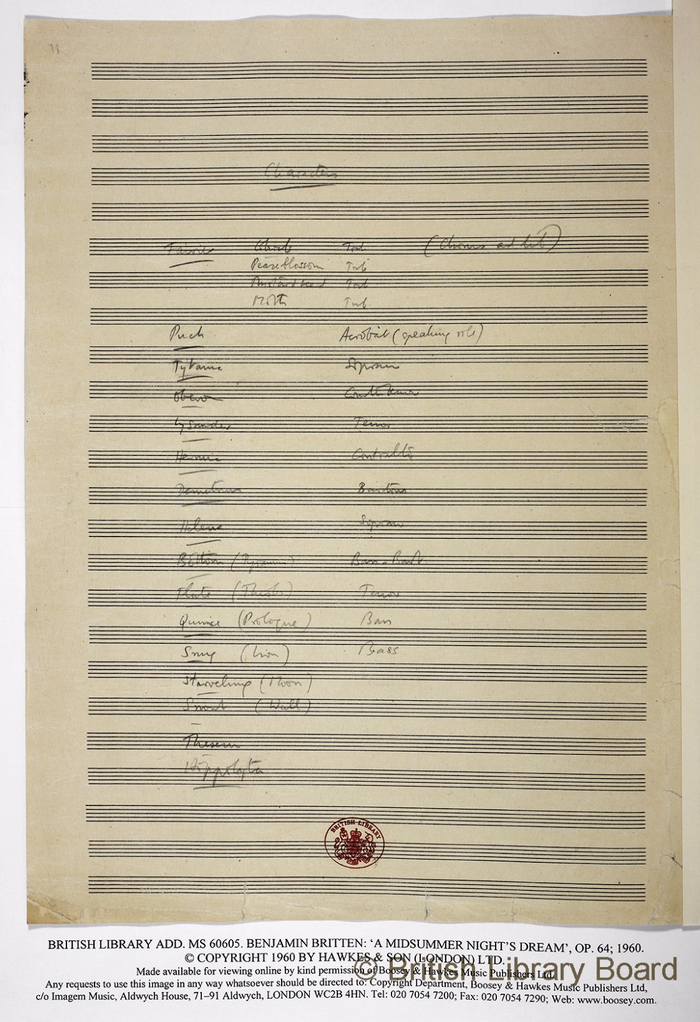 Characters
Fairies Cobweb Treb (Chorus ad lib)
Peaseblossom Treb
Mustardseed Treb
Moth Treb
Puck Acrobat (speaking role)
Tytania Soprano
Oberon Counter tenor
Lysander Tenor
Hermia Contralto
Demetrius Baritone
Helena Soprano
Bottom (Pyramus) Bass-Barit
Flute (Thisbe) Tenor
Quince (Prologue) Bass
Snug (Lion) Bass
Starveling (Moon)
Snout (Wall)
Theseus
Hippolyta
BRITISH LIBRARY
BRITISH LIBRARY ADD. MS 60605. BENJAMIN BRITTEN: ‘A MIDSUMMER NIGHT’S DREAM’, OP. 64; 1960.
© COPYRIGHT 1960 BY HAWKES & SON (LONDON) LTD.
© British Library Board
Made available for viewing online by kind permission of Boosey & Hawkes Music Publishers Ltd.
Any requests to use this image in any way whatsoever should be directed to: Copyright Department, Boosey & Hawkes Music Publishers Ltd,
c/o Imagem Music, Aldwych House, 71–91 Aldwych, LONDON WC2B 4HN. Tel: 020 7054 7200; Fax: 020 7054 7290; Web: www.boosey.com.